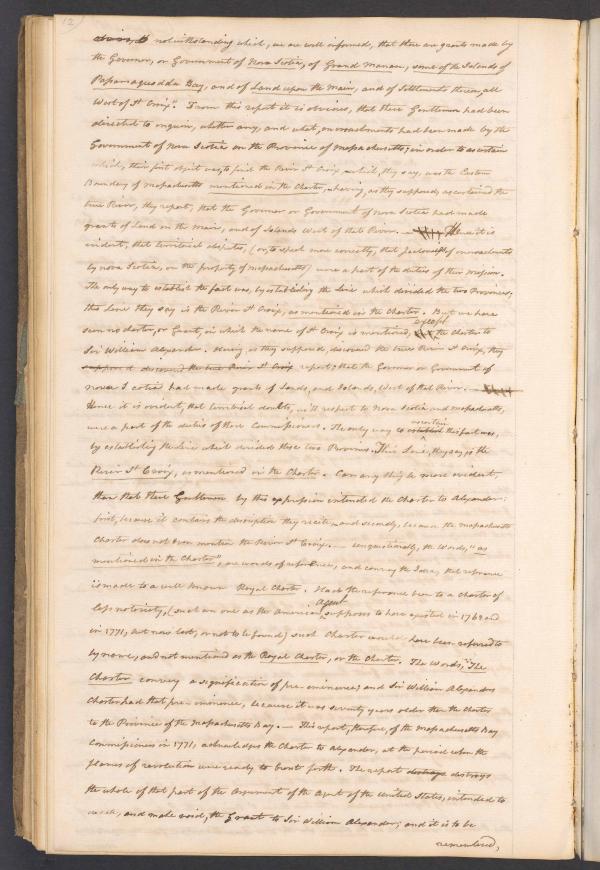 12
notwithstanding which, we are well informed, that there are grants made by
the Governor, or Government of Nova Scotia, of Grand Manan, some of the Islands of
Passamaquodda Bay, and of Land upon the Main, and of Settlements thereon, all
West of St Croix". From this report it is obvious, that these Gentlemen had been
directed to enquire, whether any, and what, encroachments had been made by the
Government of Nova Scotia on the Province of Massachusetts; in order to ascertain
which, their first object was, to find the River St Croix, which, they say, was the Eastern
Boundary of Massachusetts mentioned in the Charter, & having, as they supposed, ascertained the
true River, they report, that the Governor or Government of Nova Scotia had made
grants of Land on the Main, and of Islands West of that River. Hence it is
evident, that territorial disputes, (or, to speak more correctly, that of encroachments
by nova Scotia, on the property of Massachusetts) were a part of the duties of their mission.
The only way to establish the fact was, by establishing the line which divided the two Provinces;
this line they say is the River St Croix, as mentioned in the Charter. But we have
seen no charter, or Grant, in which the name of St Croix is mentioned, except the charter to
Sir William Alexander. Having, as they supposed, discovered the true River St Croix, they
supposed discovered the true River St Croix report; that the Governor or Government of
nova Scotia had made grants of Lands, and Islands, West of that River.
Hence it is evident, that territorial doubts, with respect to Nova Scotia and Massachusetts,
were a part of the duties of these Commissioners. The only way to establish ascertain this fact was,
by establishing the line which divided these two Provinces. This Line, they say, is the
River St Croix, as mentioned in the Charter. Can any thing be more evident,
than that these Gentlemen by this expression intended the Charter to Alexander:
first, because it contains the description they recite, and secondly, because the Massachusetts
Charter does not even mention the River St Croix. — unquestionably, the Words, "as
mentioned in the Charter", are words of reference, and convey the Idea, that reference
is made to a well known Royal Charter. Had the reference been to a charter of
less notoriety, (such an one as the American Agent supposes to have existed in 1764 and
in 1771, but now lost, or not to be found) such Charter would have been referred to
by name, and not mentioned as the Royal Charter, or the Charter. The Words, "The
Charter convey a signification of pre-eminence; and Sir William Alexanders
Charter had that pre-eminence, because it was seventy years older than the Charter
to the Province of the Massachusetts Bay. — This report, therefore, of the Massachusetts Bay
Commissioners in 1771, acknowledges the Charter to Alexander, at the period when the
flames of revolution were ready to burst forth. The report destroys destroys
the whole of that part of the Argument of the Agent of the United States, intended to
and make void, the Grant to Sir William Alexander; and it is to be
remembered,